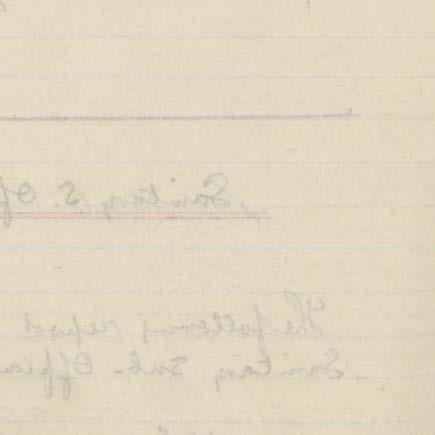 Sanitary S. Of
The following report
Sanitary Sub. Office